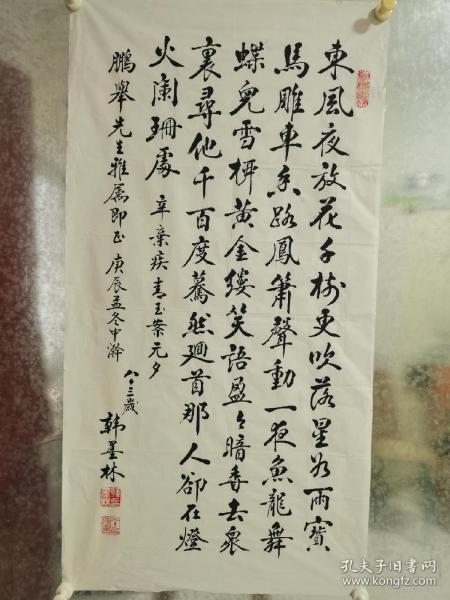 東風夜放花千樹更吹落星如雨寶
馬雕車香路鳳簫聲動一夜魚龍舞
蛾兒雪柳黃金縷笑語盈々暗香去眾
裏尋他千百度驀然迴首那人卻在燈
火闌珊處 辛棄疾青玉案元夕
鵬舉先生雅屬即正 庚辰孟冬中澣
八十三歲
韓墨林
孔夫子旧书网
www.kongfz.com